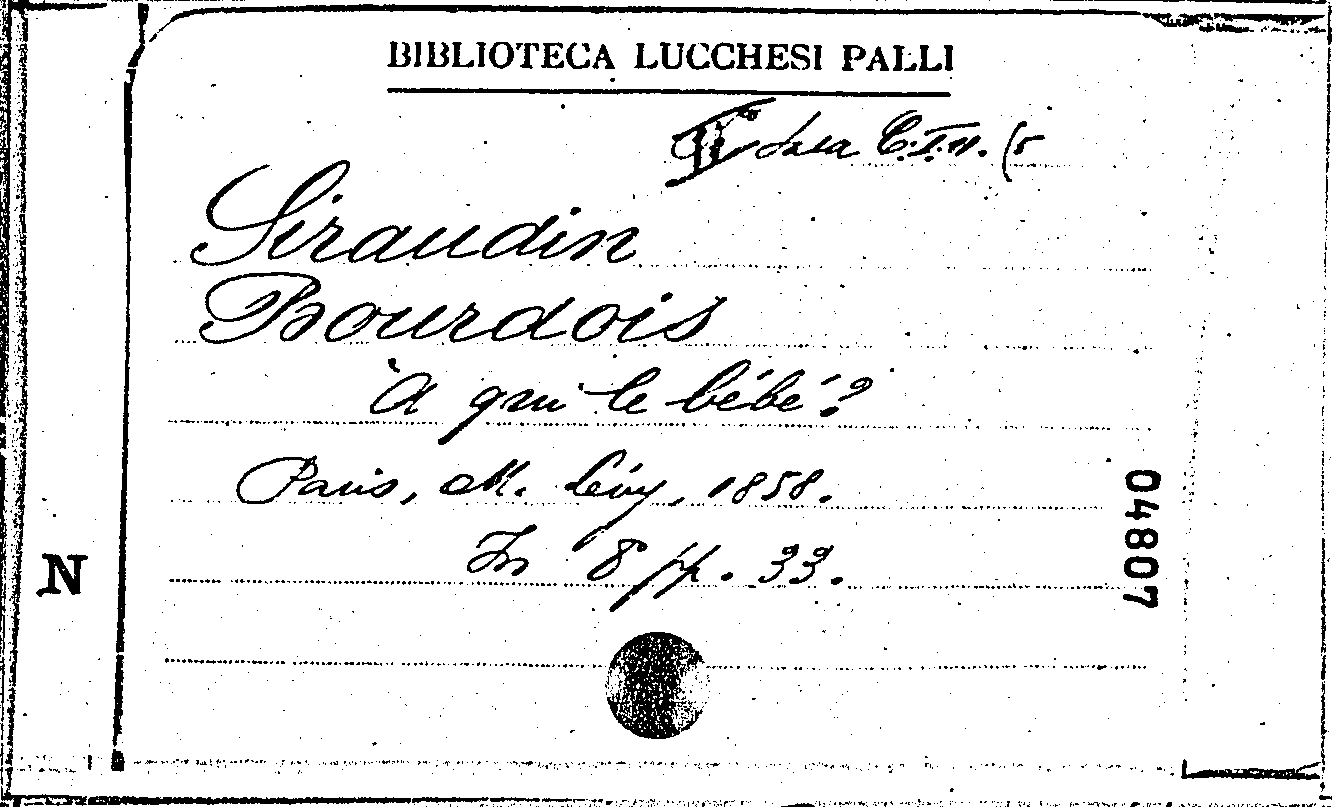 BIBLIOTECA LUCCHESI PALLI
Sala C.I.11. (5
Siraudin
Bourdois
À qui le bébé?
Paris, M. Lévy, 1858.
In 8 pp. 33.
04807
N